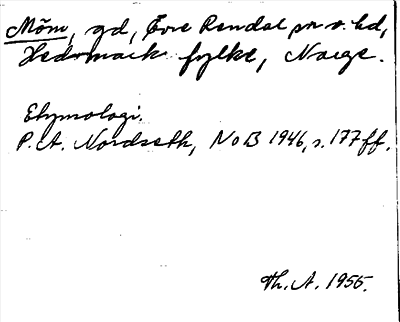 Möm, gd, Övre Rendal sn o. hd,
Hedmark fylke, Norge.
Etymologi.
P. A. Nordseth, NoB 1946, s. 177 ff.
Th. A. 1955.